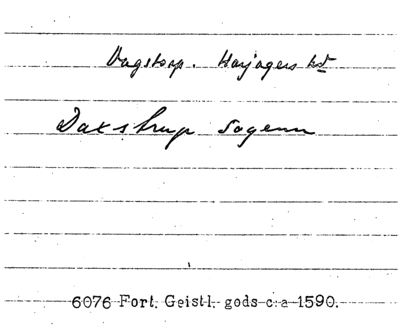 Dagstorp. Harjagers hd
Daxstrup Sogenn
6076 Fort. Geistl. gods c:a 1590.